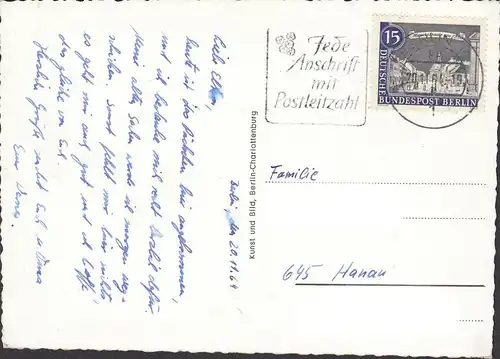 Berlin, den 20.11.64
Liebe Eltern,
heute ist das Päckchen hier angekommen,
und ich bedanke mich recht herzlich dafür.
Meine alten Salen werde ich morgen weg-
schicken. Sonst fehlt mir hier nichts
es geht mir auch gut und ich hoffe
das gleiche von Euch.
Herzliche Grüße an Euch u. Oma
Euer
Kunst und Bild, Berlin-Charlottenburg
Jede
Anschrift
mit
Postleitzahl
15
DEUTSCHE
BUNDESPOST BERLIN
20.11.64
Familie
645 Hanau